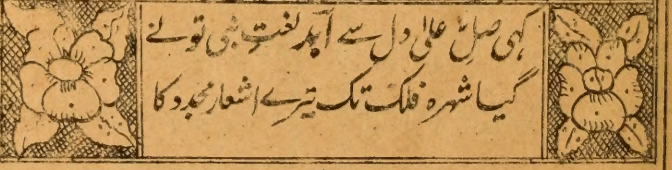 کہی صلِّ علیٰ دل سے نعتِ نبی تونے
گیا شہرہ فلک تک تیرے اشعار مجدد کا